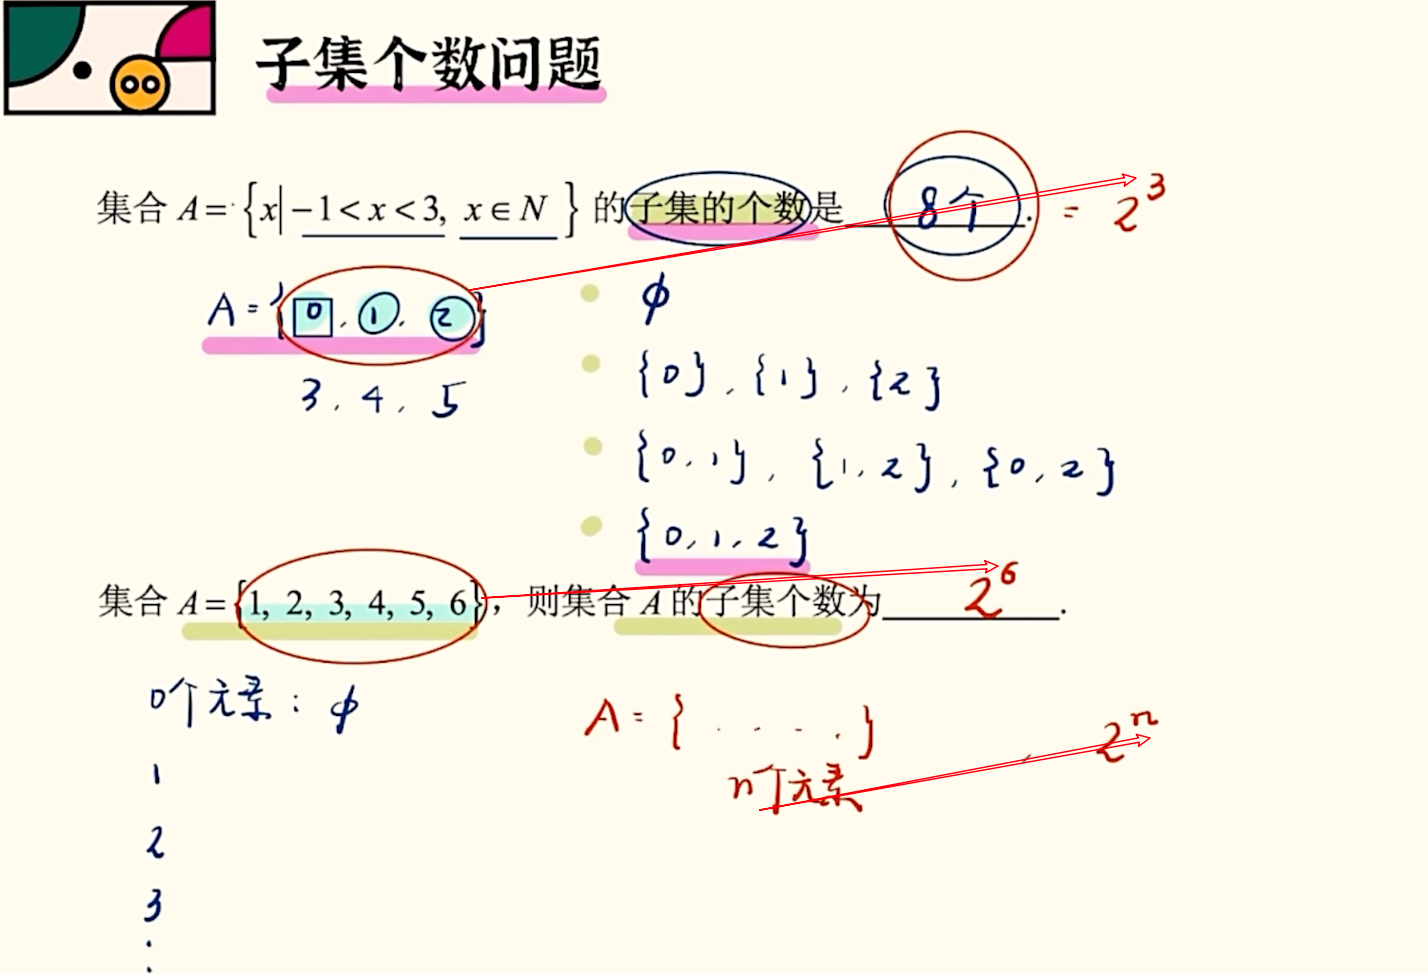 子集个数问题
集合 A = {x| −1 < x < 3, x ∈ N } 的子集的个数是 8个. = 2³
A = {0, 1, 2}
3, 4, 5
ϕ
{0}, {1}, {2}
{0, 1}, {1, 2}, {0, 2}
{0, 1, 2}
集合 A = {1, 2, 3, 4, 5, 6}, 则集合 A 的子集个数为 2⁶.
0个元素: ϕ
1
2
3
⋮
A = { . . . . }
n个元素
2ⁿ